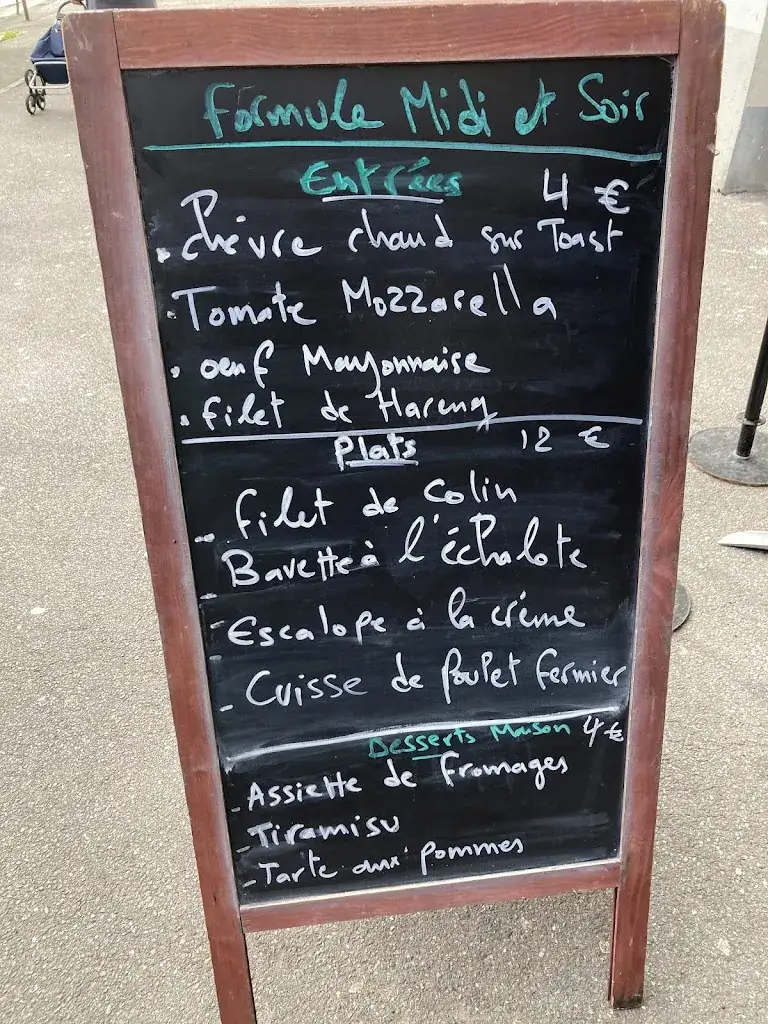 Formule Midi et Soir
Entrées 4 €
. Chèvre chaud sur Toast
. Tomate Mozzarella
. oeuf Mayonnaise
. filet de Hareng
Plats 12 €
- filet de Colin
- Bavette à l'échalote
- Escalope à la crème
- Cuisse de poulet fermier
Desserts Maison 4 €
- Assiette de fromages
- Tiramisu
- Tarte aux pommes